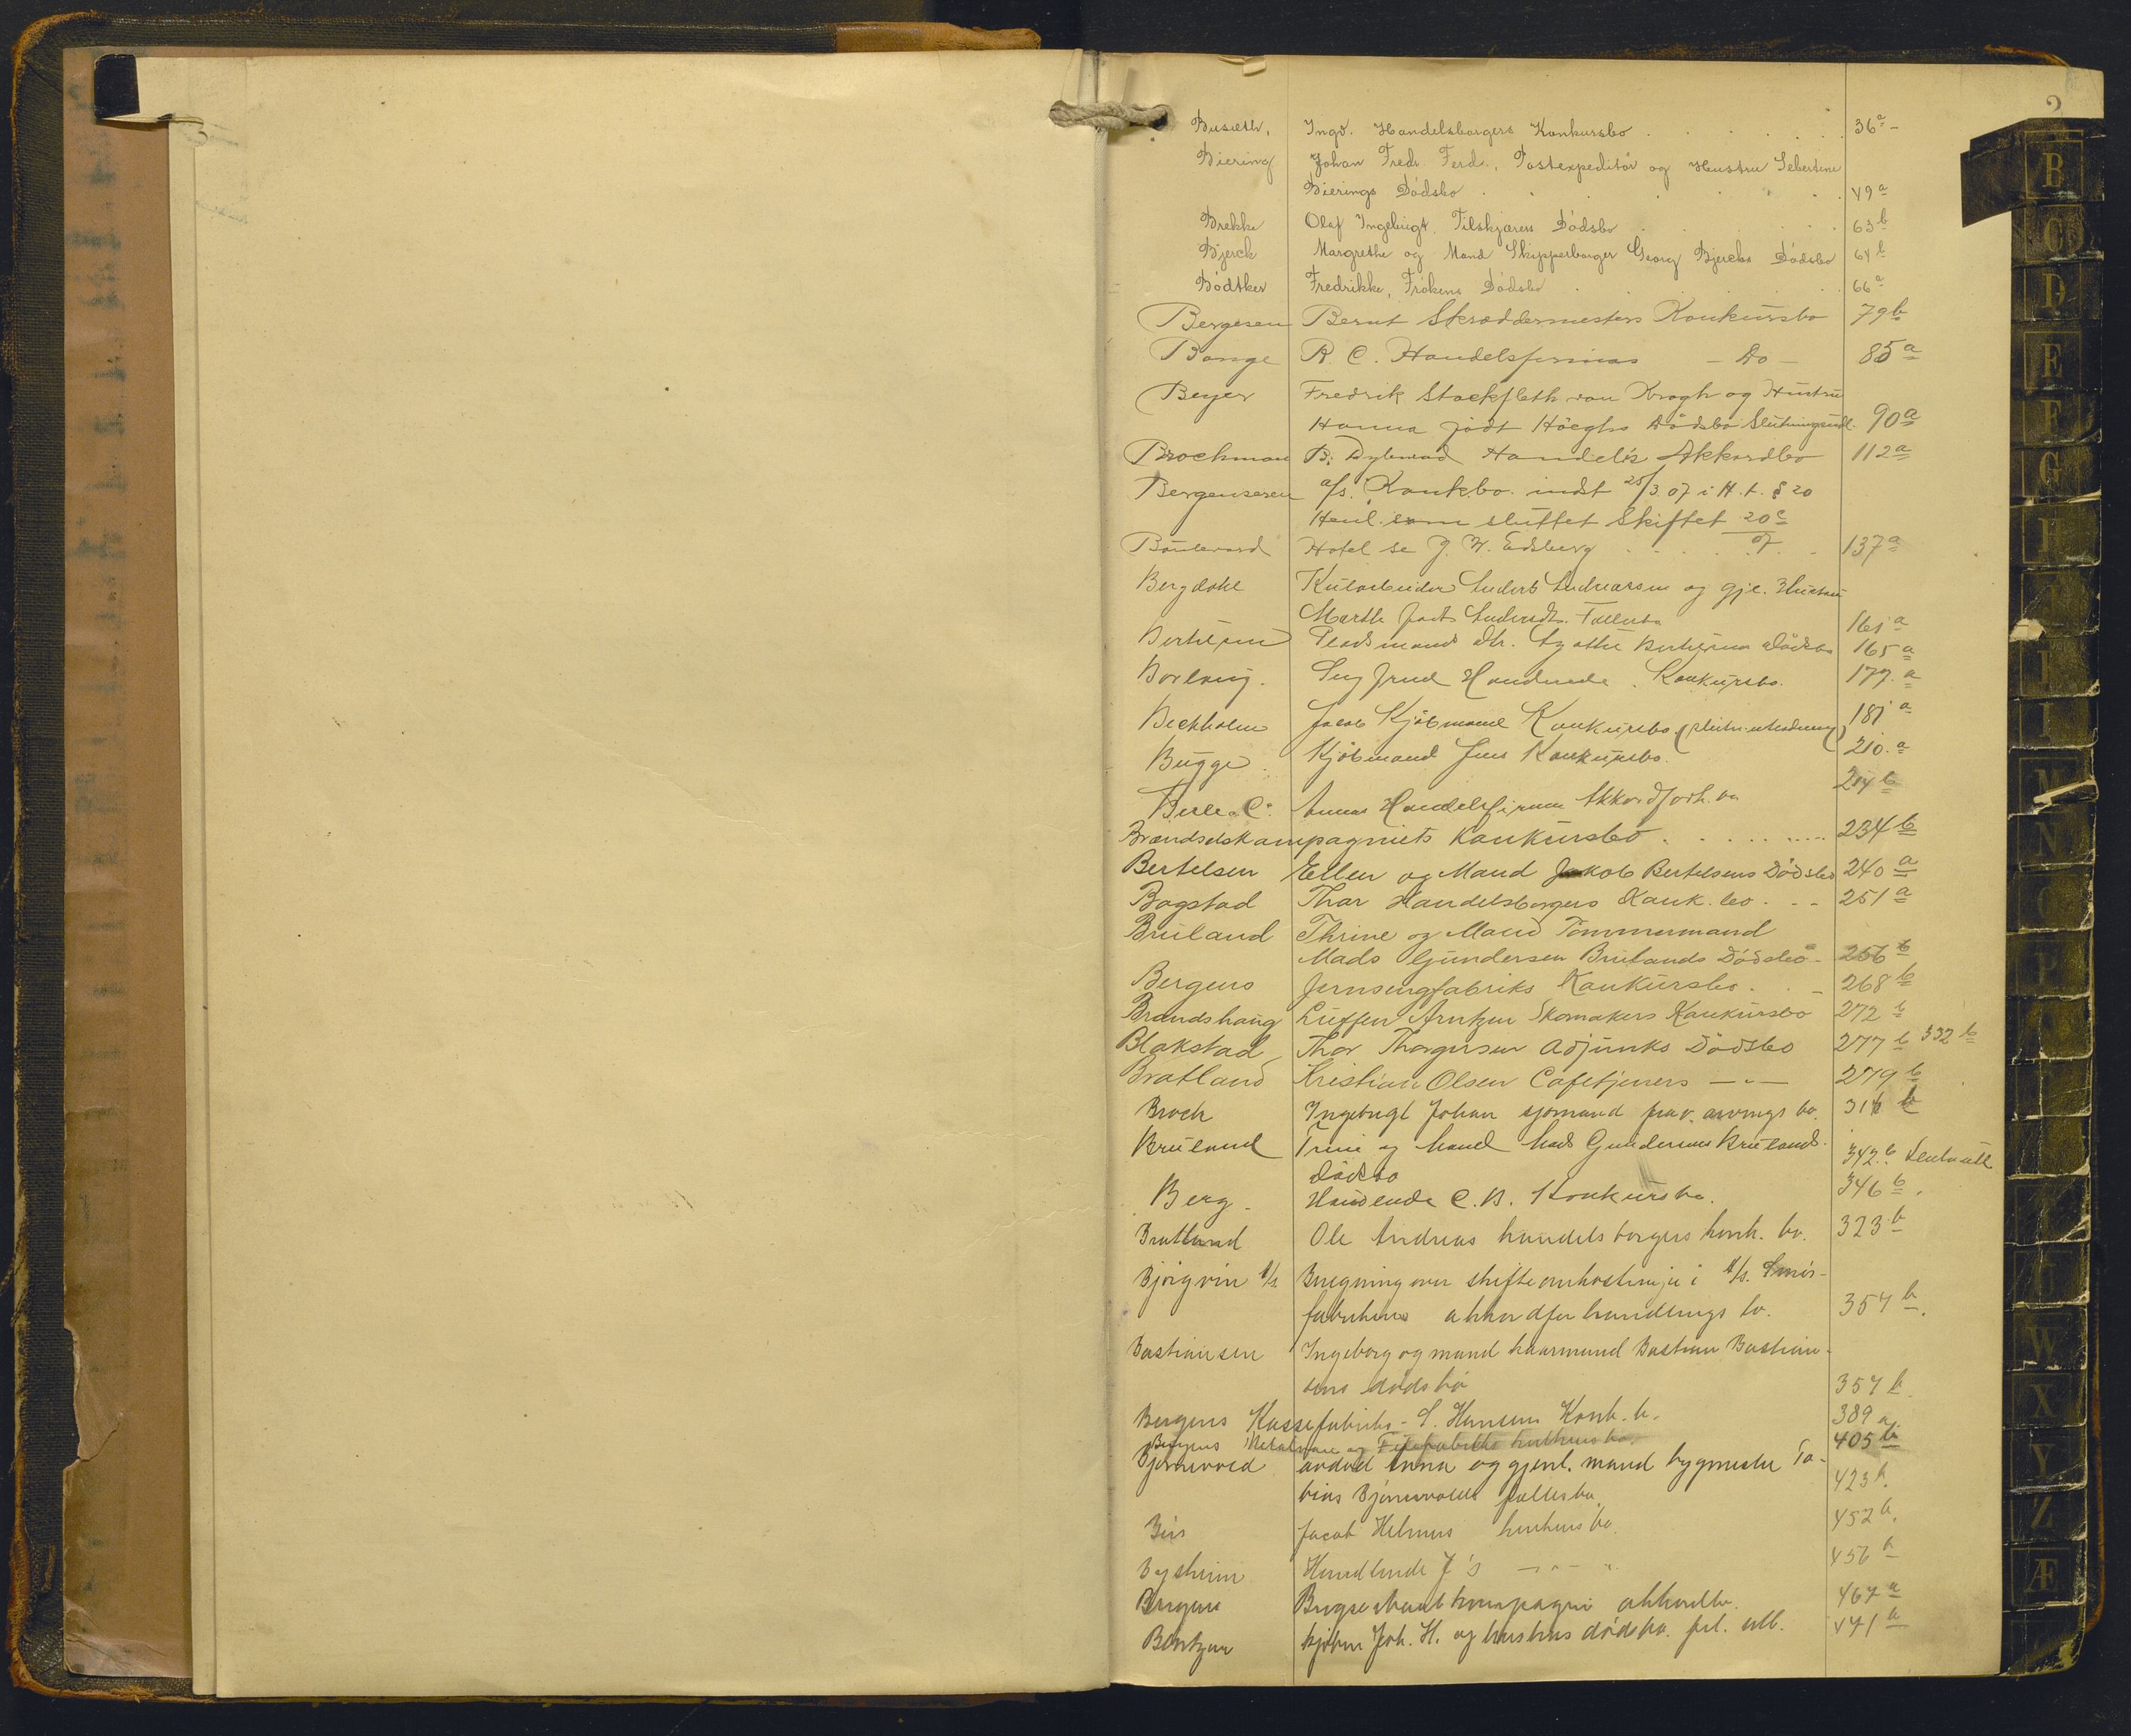 2
Busæth, Ingv. Handelsborgers Konkursbo 36a
Biering Johan Fredr. Ferd., Postexpeditör og Hustru
Bierings Dödsbo 49a
Brekke Olaf Ingebrigt. Dödsbo 63b
Bjerck Margrethe og Mand Skipperborger Georg Bjercks Dödsbo 64b
Bödtker Fredrikke, Frökens Dödsbo 66a
Bergesen Bernt Skræddermesters Konkursbo 79b
Bange R. C. Handelsfirmas — Do — 85a
Beyer Fredrik Stockfleth von Krogh og Hustru
Hanna födt Höeghs Dödsbo Slutningsudl. 90a
Brochman B. Akkordbo 112a
Bergenseren a/s. Konk.bo. indst 25/3 07 i H. t. § 20
sluttet Skiftet 20c/07
Boulevard Hotel se J. W. Edsberg 137a
Bergdahl og gje. Hustru
Marthe 161a
165a
Konkursbo. 179.a
Beckholm Jacob Kjöbmand Konkursbo. 181a
Bugge Kjöbmand Jens Konkursbo. 210.a
Handelsfirma Akkordforh. bo 214b
Brændselskompagniets Konkursbo 234b
Bertelsen Ellen og Mand Jakob Bertelsens Dödsbo 240a
Bogstad Thor Handelsborgers Konk. bo 251a
Bruland Thrine og Mand Tömmermand
Mads Gundersen Brulands Dödsbo 256b
Bergens Jernsengfabriks Konkursbo 268b
Brandshaug Arntzen Skomakers Konkursbo 272b
Blakstad Thor Thorgersen Adjunks Dödsbo 277b 332b
Bratland Kristian Olsen Cafetjeners — " — 279b
Broch Ingebrigt Johan sjömand bo. 316b
Bruland Trine og Mand Mads Gundersens Brulands 342b
Dödsbo
Berg Handlende C. B. Konkursbo. 346b
Bratland Ole Andreas handelsborgers konk. bo. 323b
Björgvin A/s Beregning over skifteomkostninger i A/s. Smör-
fabrikens akkordforhandlings bo. 354b.
Bastiansen Ingeborg og mand Bastian Bastian-
sens dödsbo 357b
Bergens Kassefabriks - S. Hansens Konk. b. 389a.
Bergens Metalvare og konkursbo. 405b
Bjørnevold avdød Anna og gjenl. mand bygmester To-
bias Bjørnevolds fællesbo. 423b.
Jacob konkursbo 452b.
Bysheim Handlende J's — " — " 456b
Bergens kompagni akkordbo. 467a
Berntzen Joh. H. og hustrus dödsbo. 471a
B
C
D
E
F
G
H
I
L
M
N
O
P
W
X
Y
Z
Æ